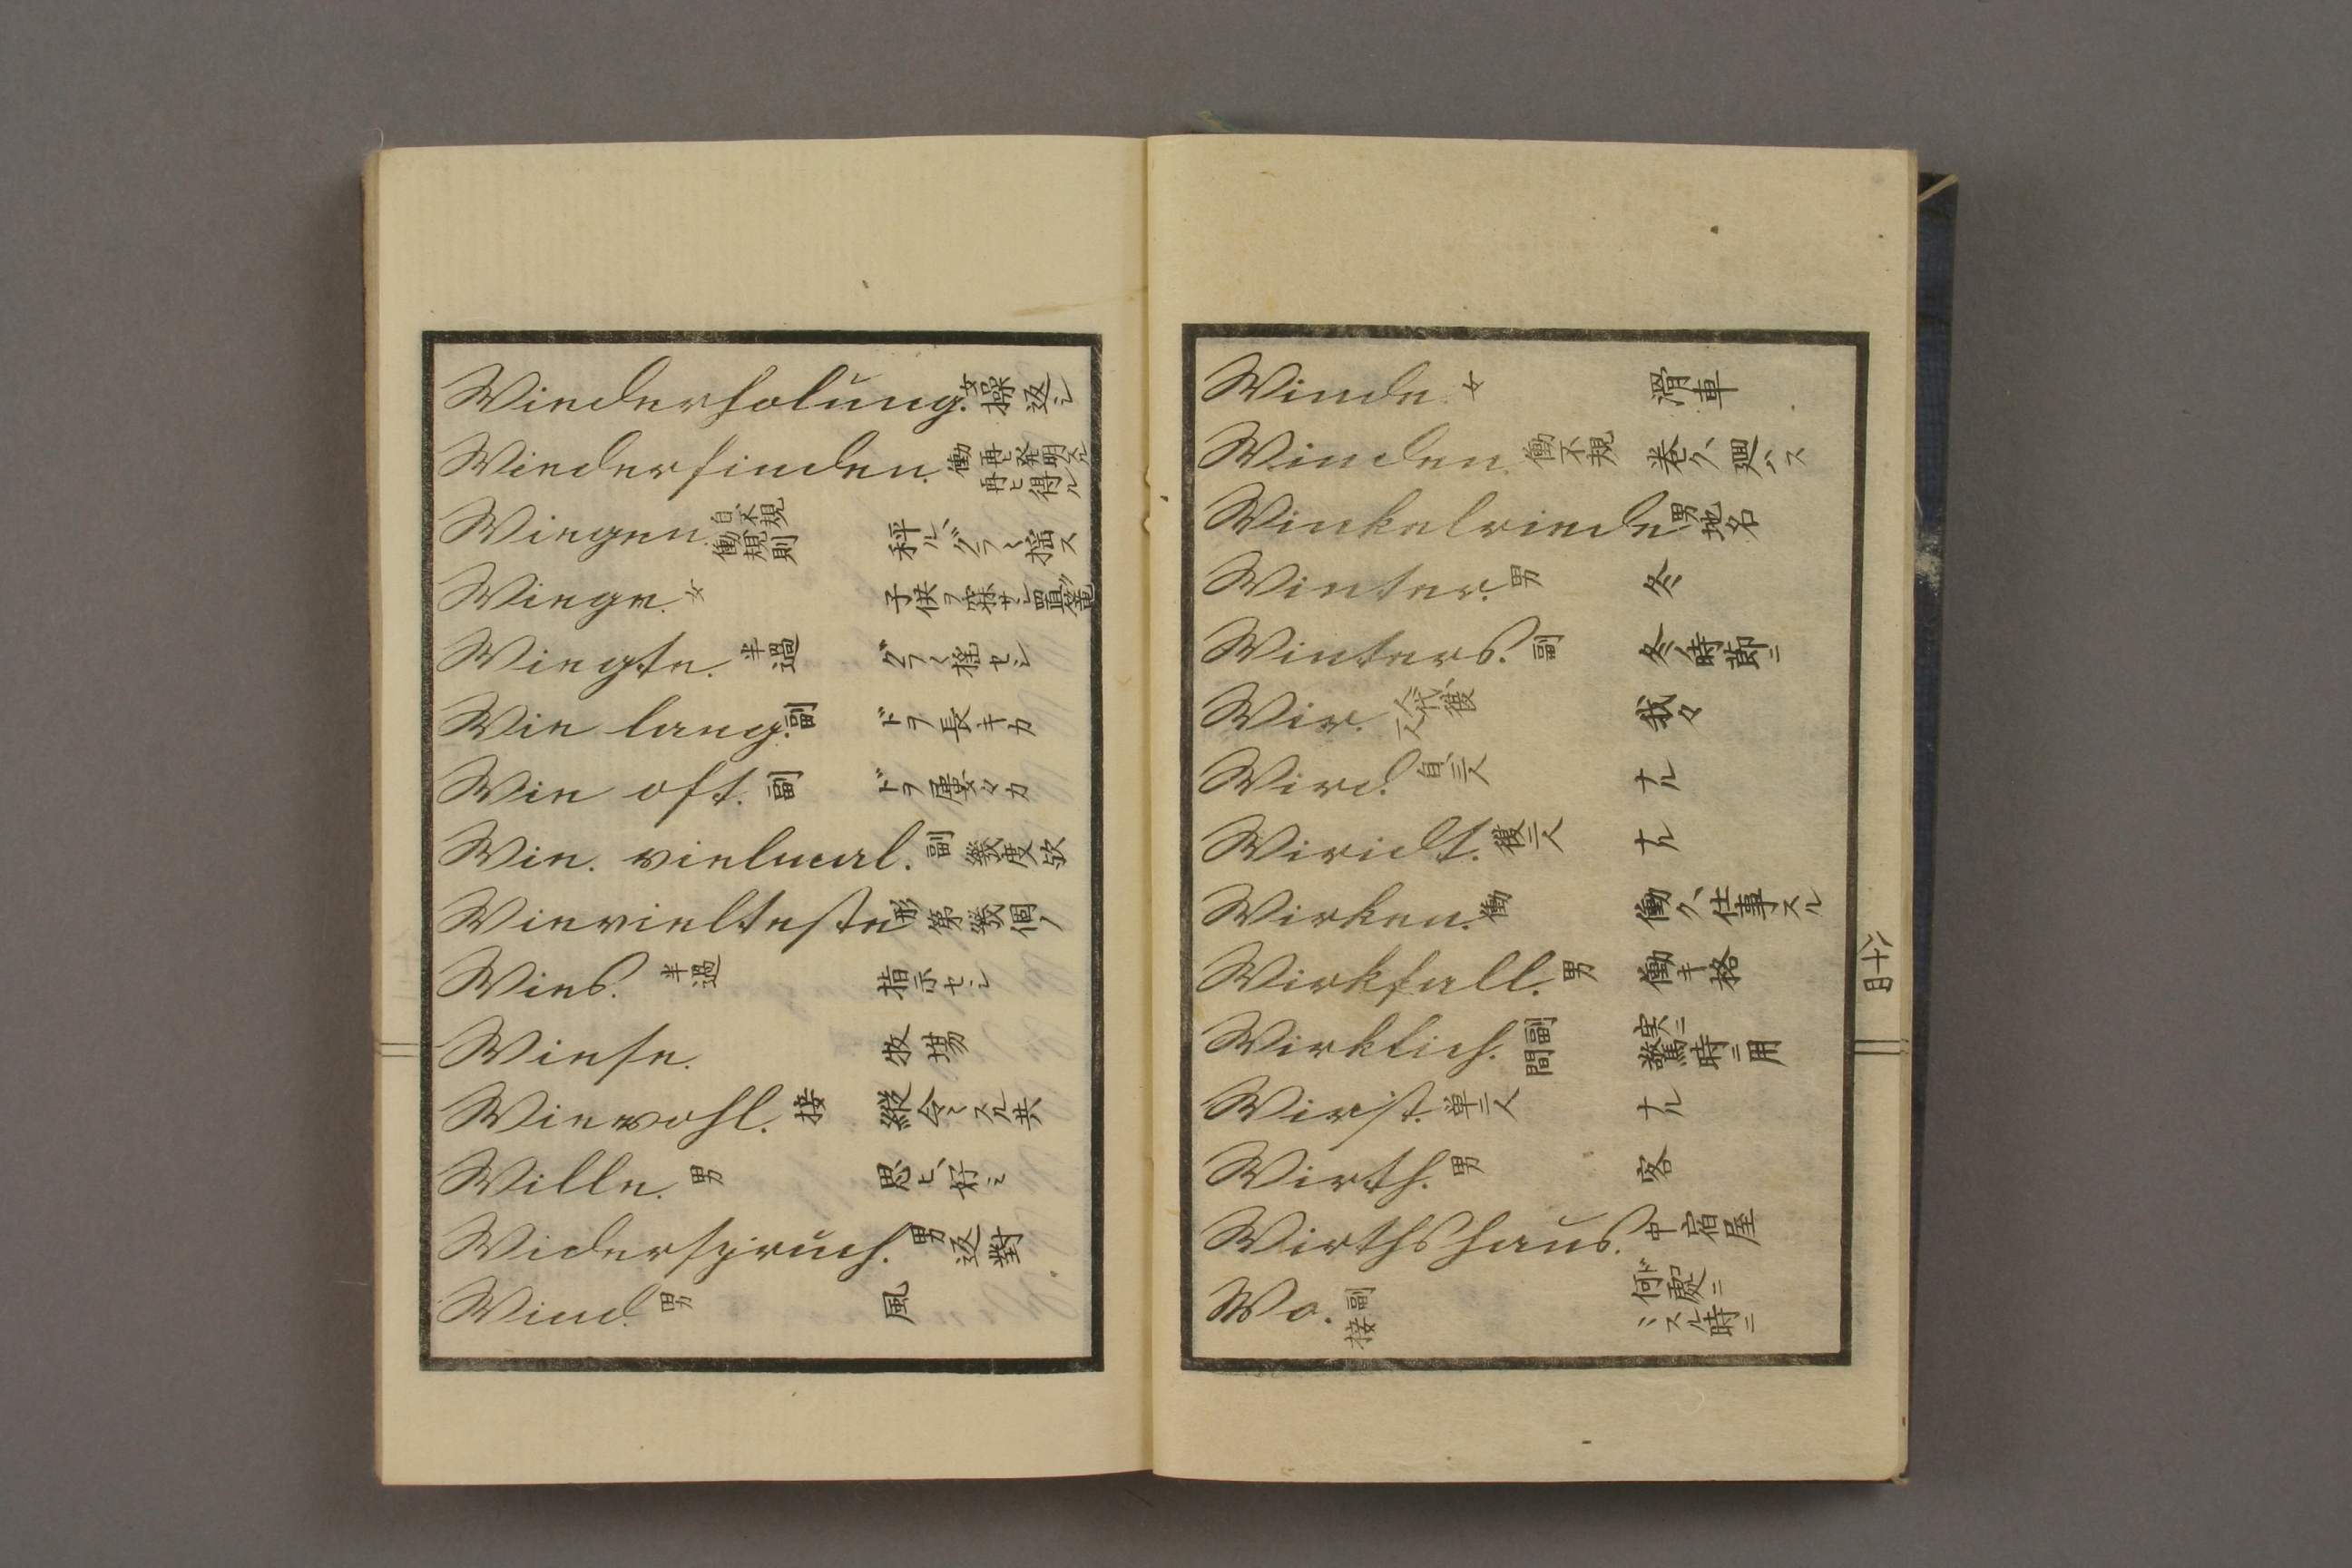 Wiederholung. 女 操返シ
Wiederfinden. 働 再ヒ発明スル 再ヒ得ル
Wiegen. 自、不規 働、規則 秤ル、グラ〱揺ス
Wiege. 女 子供ヲ寐サシ置篭
Wiegte. 半過 グラ〱搖セシ
Wie lang. 副 ドヲ長キカ
Wie oft. 副 ドヲ屢々カ
Wie. vielmal. 副 幾度欤
Wievielteste 形 第幾個ノ
Wies. 半過 指示セシ
Wiese. 牧場
Wiewohl. 接 縦令〱スル共
Wille. 男 思ヒ、好ミ
Widersprŭch. 男 返對
Wind. 男 風
Winde. 女 滑車
Winden. 働不規 巻ク、廻ハス
Winkelriede 男 地名
Winter. 男 冬
Winters. 副 冬ノ時節ニ
Wir. 人代、複一人 我々
Wird. 自、三人 ナル
Wiridt. 複二人 ナル
Wirken. 働 働ク、仕事スル
Wirkfall. 男 働キ格
Wirklich. 副 間 実ニ 驚時ニ用
Wirst. 単二人 ナル
Wirth. 男 客
Wirthshaŭs. 中 宿屋
Wo. 副 接 何処ニ スル時ニ
八十日